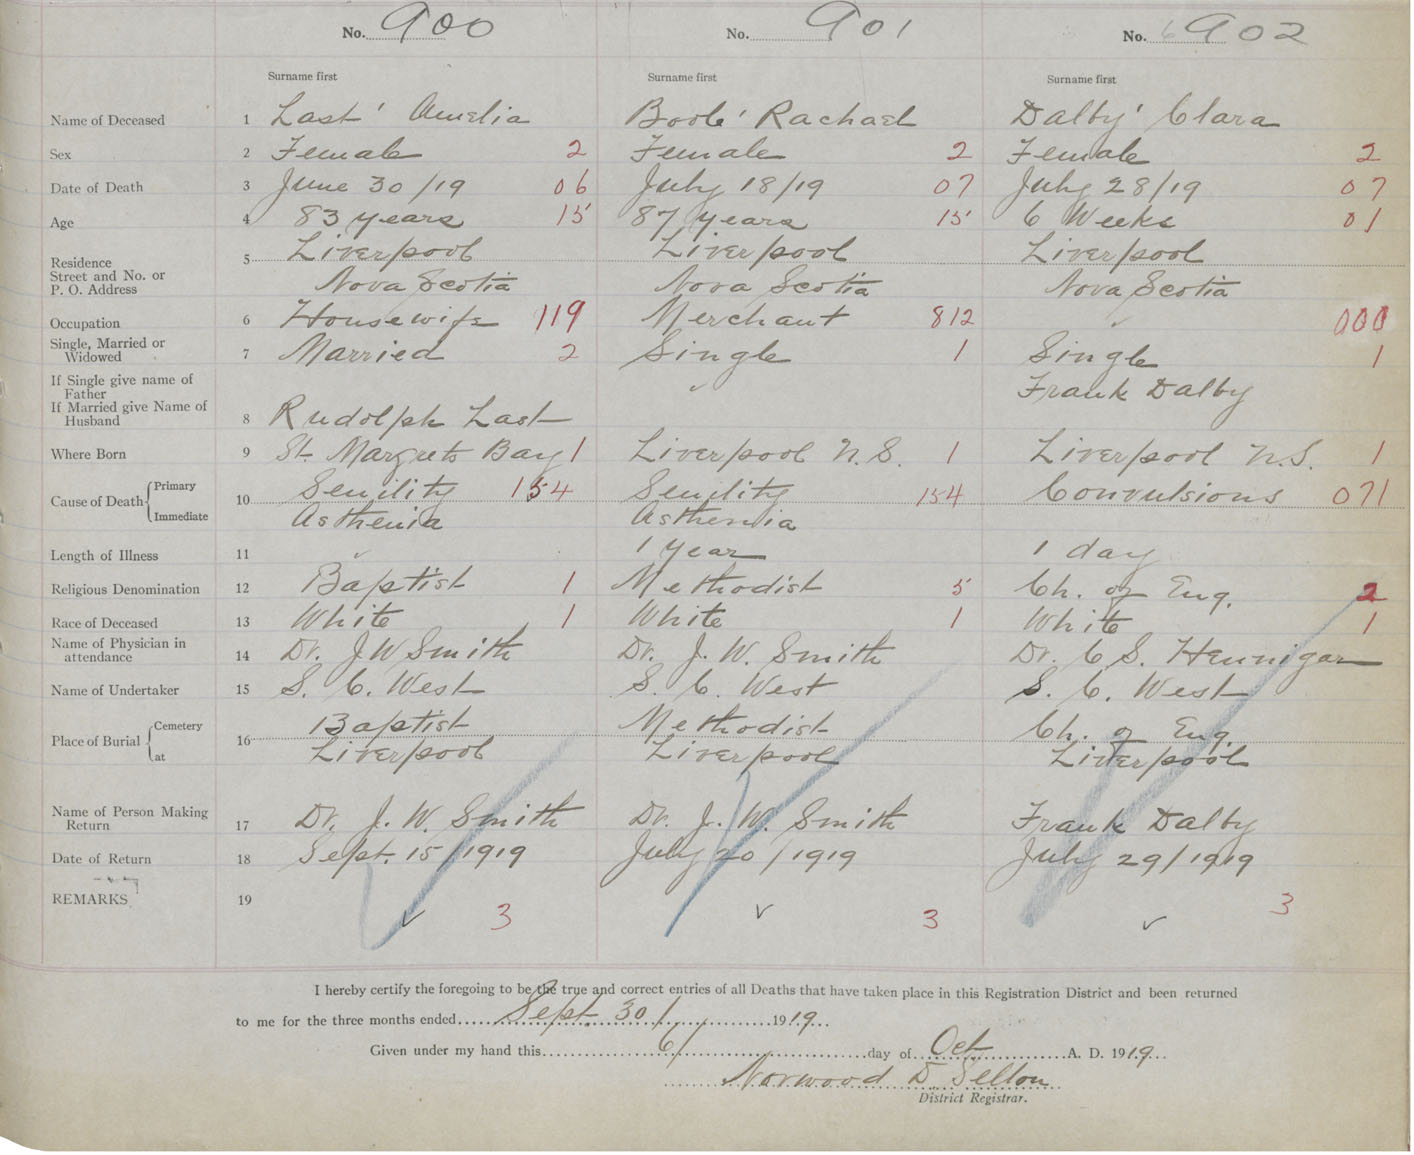 No. 900 No. 901 No. 902
Surname first Surname first Surname first
Name of Deceased 1 Last' Amelia Boole' Rachael Dalby' Clara
Sex 2 Female 2 Female 2 Female 2
Date of Death 3 June 30/19 06 July 18/19 07 July 28/19 07
Age 4 83 years 15 87 years 15 6 Weeks 01
Residence 5 Liverpool Liverpool Liverpool
Street and No. or
P. O. Address Nova Scotia Nova Scotia Nova Scotia
Occupation 6 Housewife 119 Merchant 812 000
Single, Married or
Widowed 7 Married 2 Single 1 Single 1
If Single give name of
Father Frank Dalby
If Married give Name of
Husband 8 Rudolph Last
Where Born 9 St. Margrets Bay 1 Liverpool N.S. 1 Liverpool N.S. 1
Cause of Death Primary 10 Senility 154 Senility 154 Convulsions 071
Immediate Asthenia Asthenia
Length of Illness 11 1 year 1 day
Religious Denomination 12 Baptist 1 Methodist 5 Ch. of Eng. 2
Race of Deceased 13 White 1 White 1 White 1
Name of Physician in
attendance 14 Dr. J W Smith Dr. J. W. Smith Dr. C S. Hennigar
Name of Undertaker 15 S. C. West S. C. West S. C. West
Place of Burial Cemetery 16 Baptist Methodist Ch. of Eng.
at Liverpool Liverpool Liverpool
Name of Person Making
Return 17 Dr. J. W. Smith Dr. J. W. Smith Frank Dalby
Date of Return 18 Sept. 15/1919 July 20/1919 July 29/1919
REMARKS 19 3 3 3
I hereby certify the foregoing to be the true and correct entries of all Deaths that have taken place in this Registration District and been returned
to me for the three months ended Sept. 30/ 1919
Given under my hand this 6/ day of Oct A. D. 1919
Norwood D. Sellon
District Registrar.